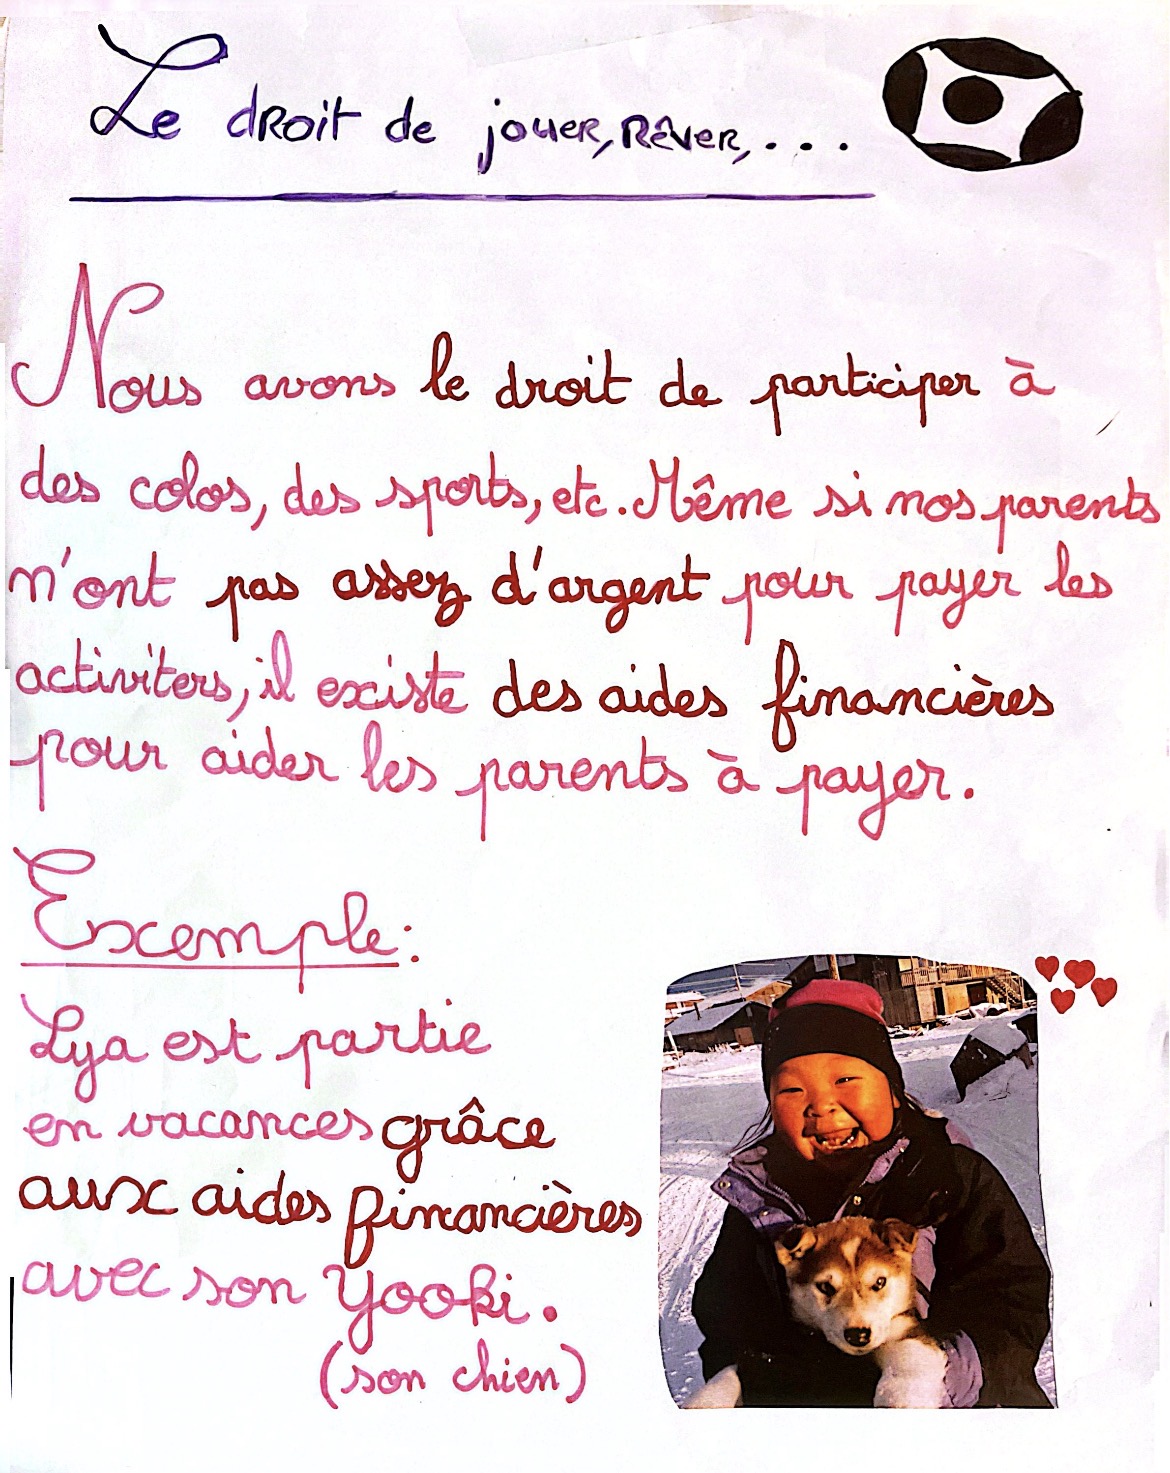 Le droit de jouer, rêver, ...
Nous avons le droit de participer à
des colos, des sports, etc. Même si nos parents
n'ont pas assez d'argent pour payer les
activiters, il existe des aides financières
pour aider les parents à payer.
Excemple :
Lya est partie
en vacances grâce
aux aides financières
avec son Yooki.
(son chien)